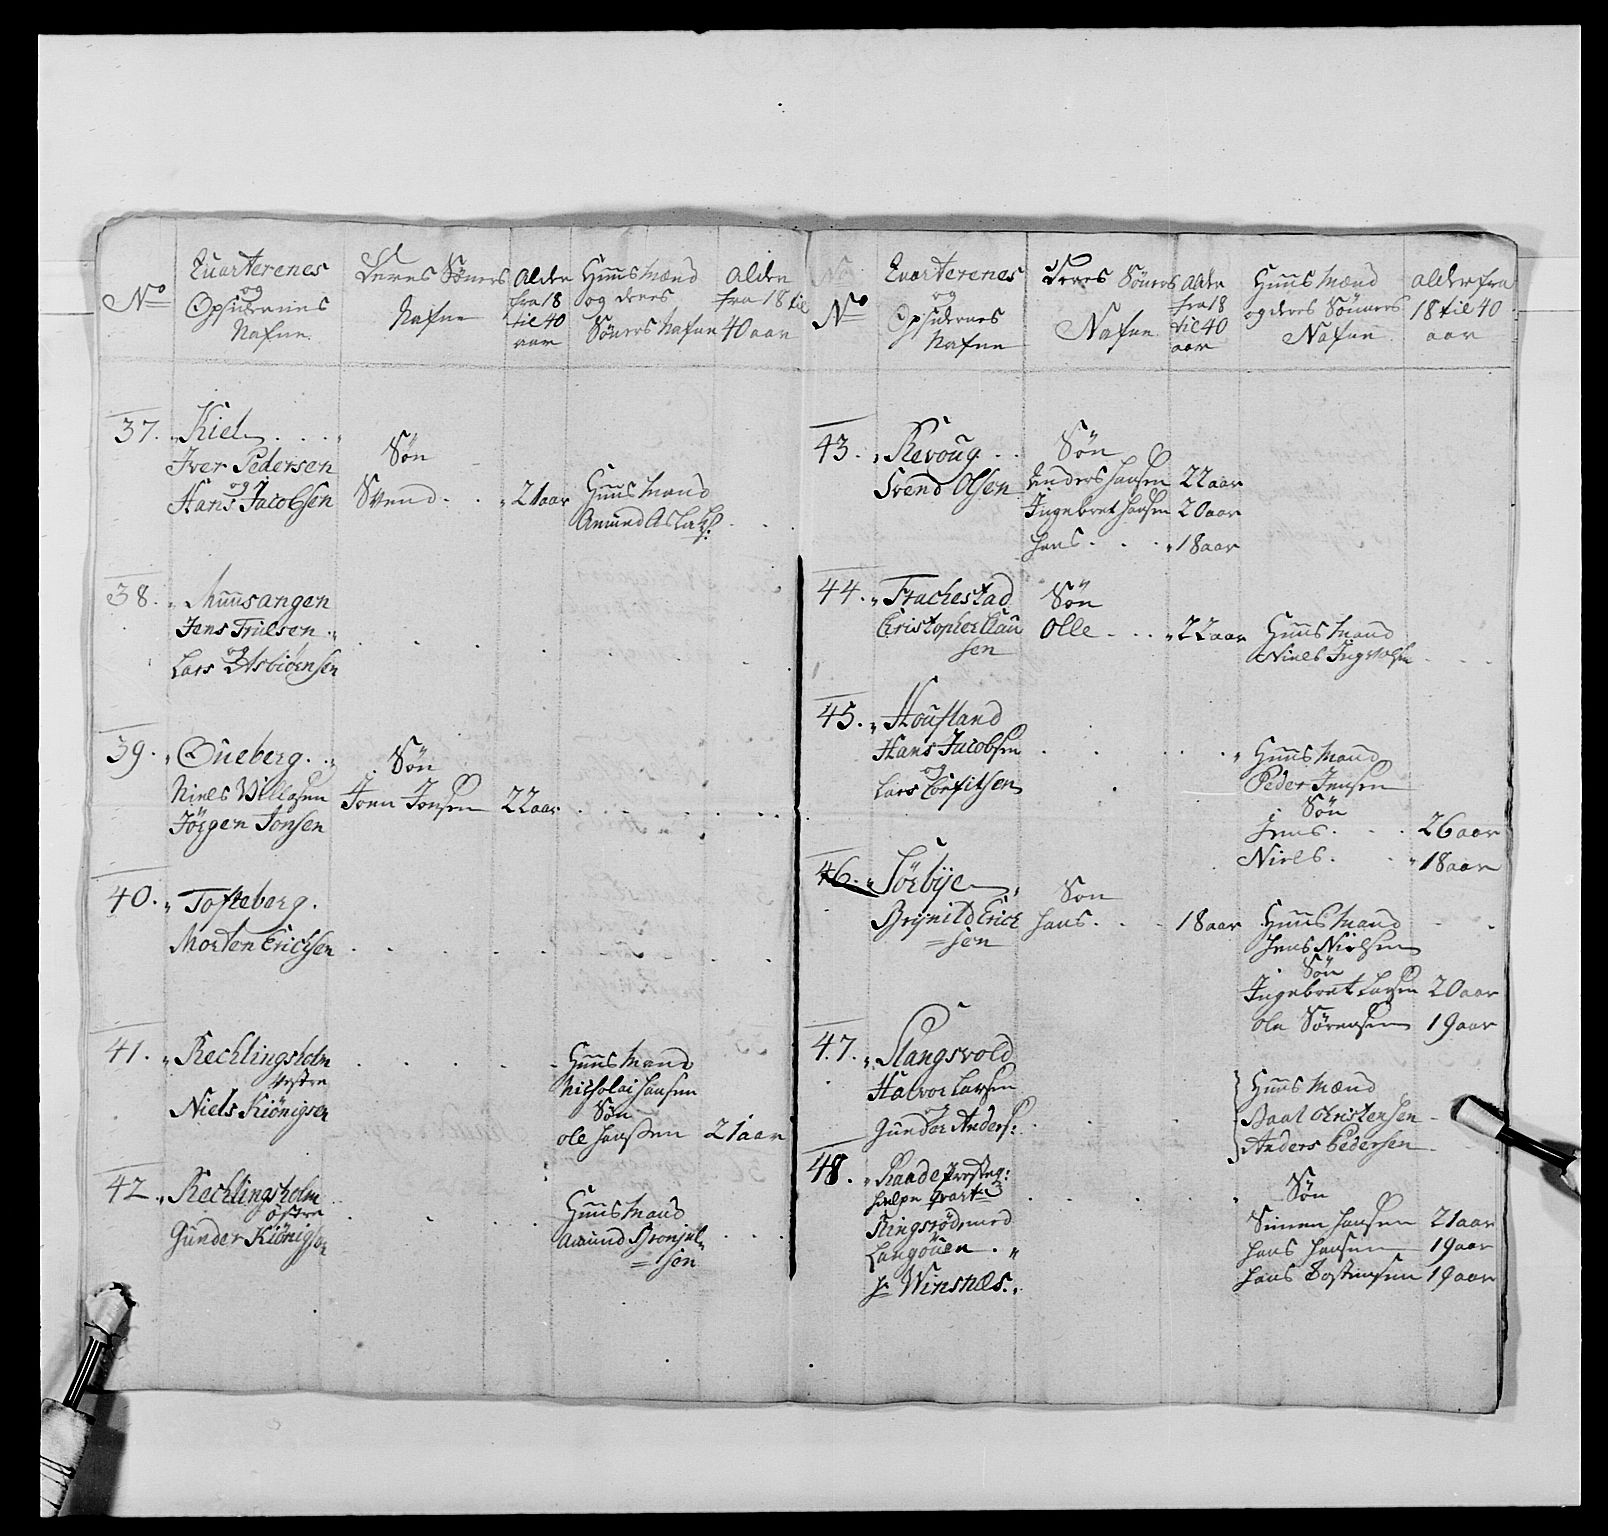 No
Qvarterenes
og
Opsidernes
Nafne
Deres Sönners
Nafne
Alder
fra 18
til 40
aar
Huus Mænd
og deres
Söners Nafne
Alder
fra 18 til
40 aar
37. Kiel
Iver Pedersen
og
Hans Jacobsen
Sön
Svend 21 aar
Huus Mand
Amund Aslaks:
38. Muusangen
Jens Trulsen
og
Lars Asbiörnsen
39. Oueberg
Niels Villasen
Jörgen Jonsen
Sön
Joen Jonsen 22 aar
40. Tofteberg
Morten Erichsen
41. Rechlingsholm
vestre
Niels Kiönigsen
Huus Mand
Nicholai Hansen
Sön
Ole Hanssen 21 aar
42. Rechlingsholm
östre
Gunder Kiönigsen
Huus Mand
Amund Bronjul
=sen
No
Qvarterenes
og
Opsidernes
Nafne
Deres Söners
Nafne
Alder
fra 18
til 40
aar
Huus Mænd
og deres Sönners
Nafne
Alder fra
18 til 40
aar
43. Revoug
Svend Olsen
Sön
Anders Hansen 22 aar
Ingebret Hansen 20 aar
Hans 18 aar
44. Frachestad
Cristopher Clau
sen
Sön
Olle 22 aar
Huus Mand
Niels Ingvolsen
45. Houfland
Hans Jacobsen
og
Lars Torfitsen
Huus Mand
Peder Jensen
Sön
Jens 26 aar
Niels 18 aar
46. Sörbye
Brynild Erich
=sen
Son
Hans 18 aar
Huus Mand
Jens Nielsen
Sön
Ingebret Larsen 20 aar
Ole Sörensen 19 aar
47. Slangsvold
Halvor Larsen
og
Gunder Anders:
Huus Mænd
Paal Cristensen
Anders Pedersen
48. Raade Præsteg:
Hielpe Qvart
Ringsröd med
Langöuen
Hr Winsnes
Sön
Simen Hansen 21 aar
Hans Hansen 19 aar
Hans Tostensen 19 aar